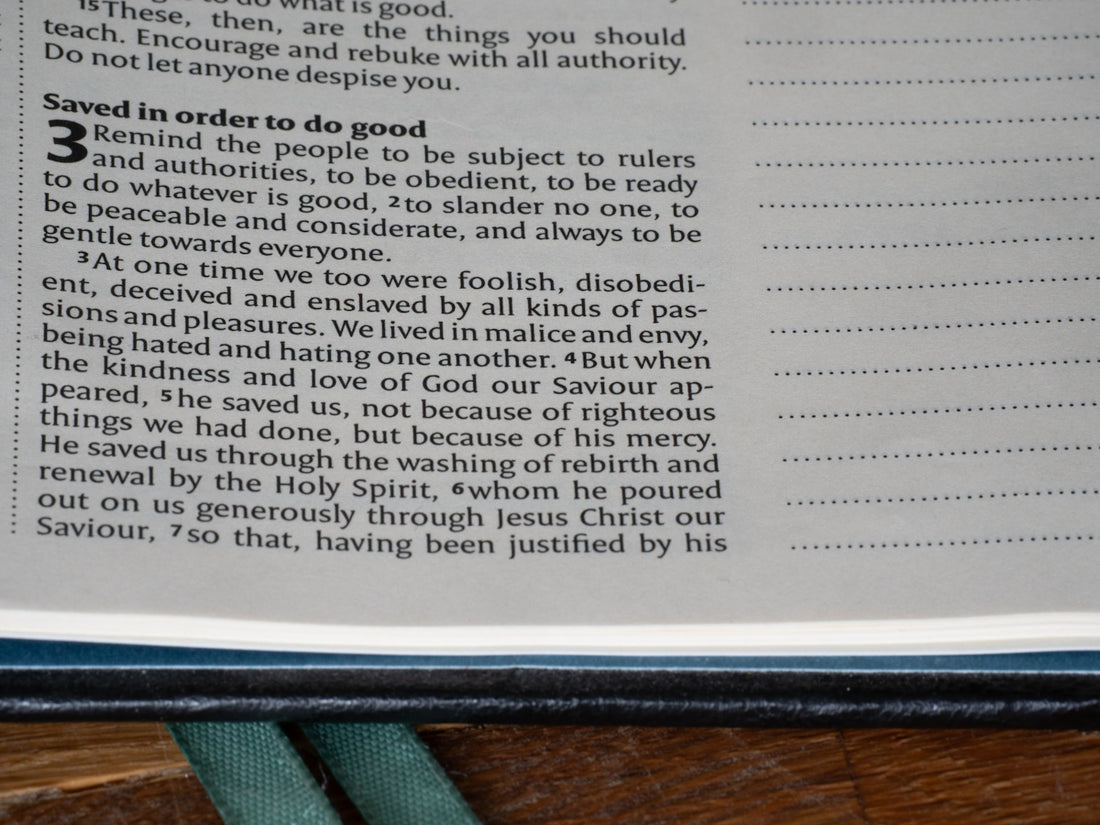 to do what is good.
15 These, then, are the things you should
teach. Encourage and rebuke with all authority.
Do not let anyone despise you.
Saved in order to do good
3 Remind the people to be subject to rulers
and authorities, to be obedient, to be ready
to do whatever is good, 2 to slander no one, to
be peaceable and considerate, and always to be
gentle towards everyone.
3 At one time we too were foolish, disobedi-
ent, deceived and enslaved by all kinds of pas-
sions and pleasures. We lived in malice and envy,
being hated and hating one another. 4 But when
the kindness and love of God our Saviour ap-
peared, 5 he saved us, not because of righteous
things we had done, but because of his mercy.
He saved us through the washing of rebirth and
renewal by the Holy Spirit, 6 whom he poured
out on us generously through Jesus Christ our
Saviour, 7 so that, having been justified by his